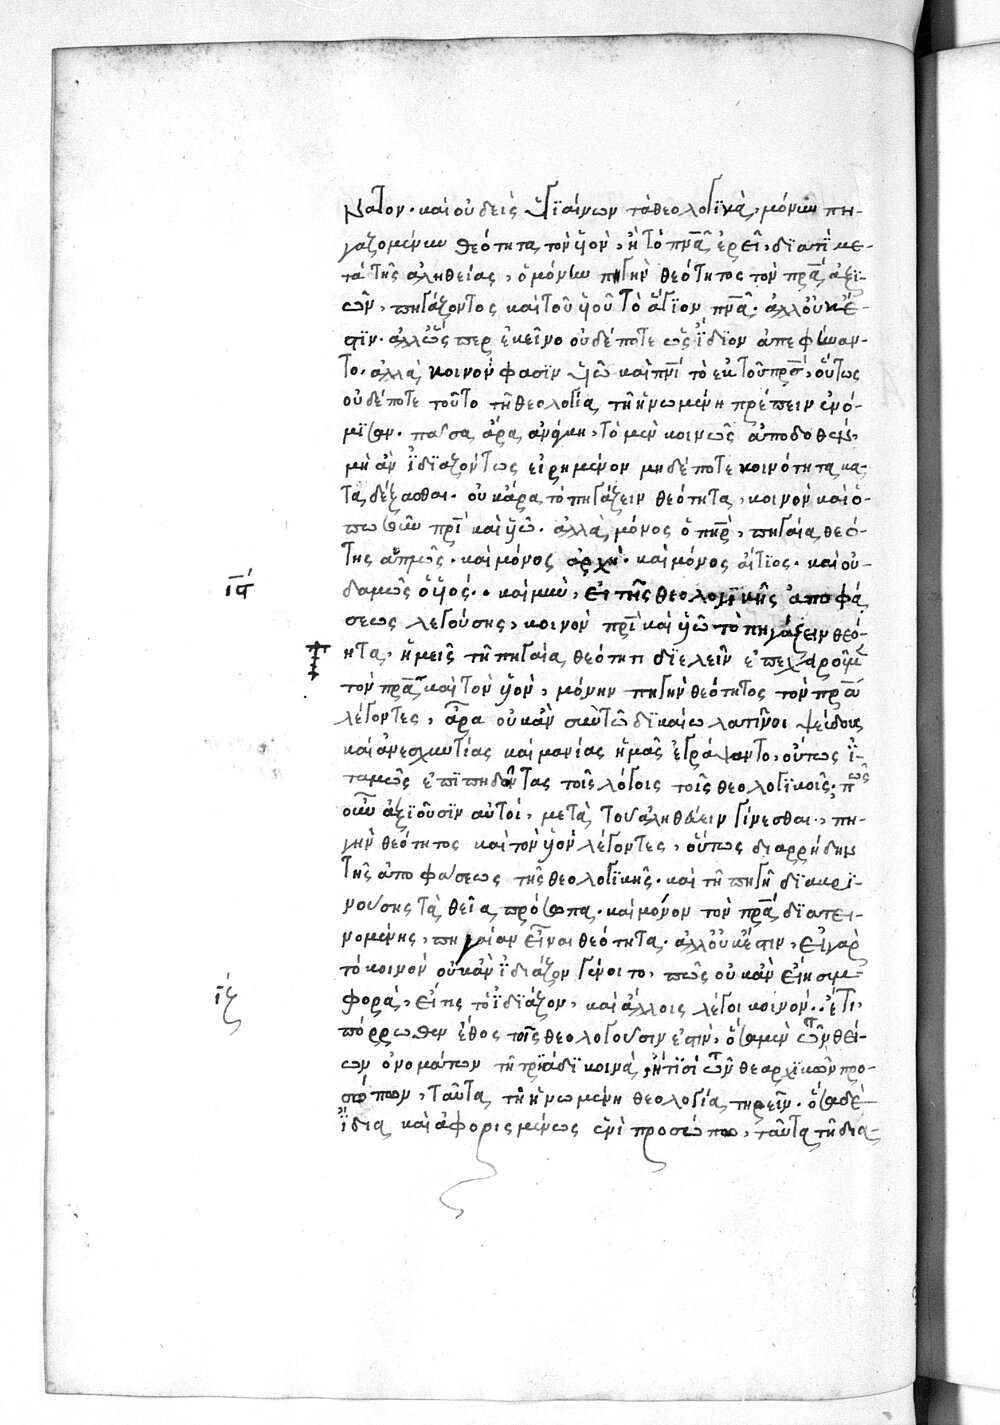 νατον· καὶ οὐδεὶς ὑγιαίνων τὰ θεολογικὰ, μόνων πη-
γαζομένων θεότητα τὸν ὑν, ἢ τὸ πνᾶ ἐρεῖ, διατὶ με-
τὰ τῆς ἀληθείας, ὁ μόνων πηγὴν θεότητος τὸν πρᾶ ἀξι-
ῶν, πηγάζοντος καὶ τοῦ ὑοῦ τὸ ἅγιον πνᾶ· ἀλλ' οὐκ ἔ-
στιν· ἀλλ' ὥσπερ ἐκεῖνο οὐδέποτε ὡς ἴδιον ἀπεφήναν-
το· ἀλλὰ κοινόν φασιν ὑῶ καὶ πνὶ τὸ ἐκ τοῦ πρς, οὕτως
οὐδέποτε τοῦτο τῆ θεολογία τῆ ἡνωμένη πρέπειν ἐνό-
μισαν· πᾶσα ἄρα ἀνάγκη, τὸ μὲν κοινῶς ἀποδοθὲν,
μὴ ἂν ἰδιαζόντως εἰρημένον μηδέποτε κοινότητα κα-
ταδέξασθαι· οὐκ ἄρα τὸ πηγάζειν θεότητα, κοινὸν καὶ ὁ-
πωσοῦν πρὶ καὶ ὑῶ· ἀλλὰ μόνος ὁ πηρ, πηγαία θεό-
της καὶ μόνος ἀρχὴ· καὶ μόνος αἴτιος· καὶ οὐ-
δαμῶς ὁ ὑός·· καὶ μὴν, εἰ τῆς θεολογικῆς ἀποφά
ιϛ´
σεως λεγούσης, κοινὸν πρὶ καὶ ὑῶ τὸ πηγάζειν θεό-
τητα, ἡμεῖς τῆ πηγαία θεότητι διελεῖν ἐπεχειροῦμεν
τὸν πρᾶ καὶ τὸν ὑὸν, μόνην πηγὴν θεότητος τὸν πρᾶ
λέγοντες, ἆρα οὐκ ἂν σὺν τῶ δικαίω λατῖνοι ψεύδους
καὶ ἀναισχυντίας καὶ μανίας ἡμᾶς ἐγράψαντο, οὕτως ἰ-
ταμῶς ἐπιπηδῶντας τοῖς λόγοις τοῖς θεολογικοῖς; πῶς
οὖν ἀξιοῦσιν αὐτοὶ, μετὰ τοῦ ἀληθεύειν γίνεσθαι, πη-
γὴν θεότητος καὶ τὸν ὑὸν λέγοντες, οὕτως διαρρήδην
τῆς ἀποφάσεως τῆς θεολογικῆς· καὶ τῆ πηγῆ διακρι-
νούσης τὰ θεῖα πρόσωπα· καὶ μόνον τὸν πρᾶ διατει-
νομένης, πηγαίαν εἶναι θεότητα· ἀλλ' οὐκ ἔστιν, εἰ γὰρ
τὸ κοινὸν οὐκ ἂν ἰδιάζον γένοιτο, πῶς οὐκ ἂν εἴη συμ-
φορὰ, εἴ τις τὸ ἰδιάζον, καὶ ἄλλοις λέγοι κοινόν·· ἔτι,
ιζ
πόρρωθεν ἔθος τοῖς θεολογοῦσιν ἐστὶν, ὅσα μὲν τῶν θεί-
ων ὀνομάτων τῆ τριάδι κοινὰ, ἤ τισι τῶν θεαρχικῶν προ-
σώπων, ταῦτα τῆ ἡνωμένη θεολογία τηρεῖν· ὅσα δὲ
ἴδια καὶ ἀφορισμένως ἑνὶ προσώπω, ταῦτα τῆ δια-